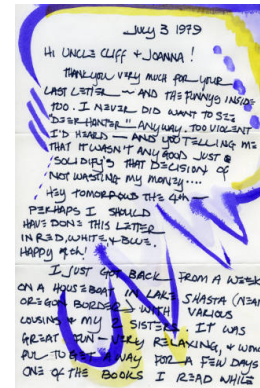 JULY 3 1979
HI UNCLE CLIFF + JOANNA!
THANKYOU VERY MUCH FOR YOUR
LAST LETTER — AND THE FUNNYS INSIDE
TOO. I NEVER DID WANT TO SEE
"DEERHANTER" ANYWAY. TOO VIOLENT
I'D HEARD — AND YOU TELLING ME
THAT IT WASN'T ANY GOOD JUST
SOLDIFY'S THAT DECISION OF
NOT WASTING MY MONEY....
HEY TOMORROW'D THE 4TH —
PERHAPS I SHOULD
HAVE DONE THIS LETTER
IN RED, WHITE + BLUE.
HAPPY 4TH!
I JUST GOT BACK FROM A WEEK
ON A HOUSEBOAT IN LAKE SHASTA (NEAR
OREGON BORDER) WITH VARIOUS
COUSINS + MY 2 SISTERS. IT WAS
GREAT FUN — VERY RELAXING, + WON
FUL TO GET AWAY FOR A FEW DAYS
ONE OF THE BOOKS I READ WHILE